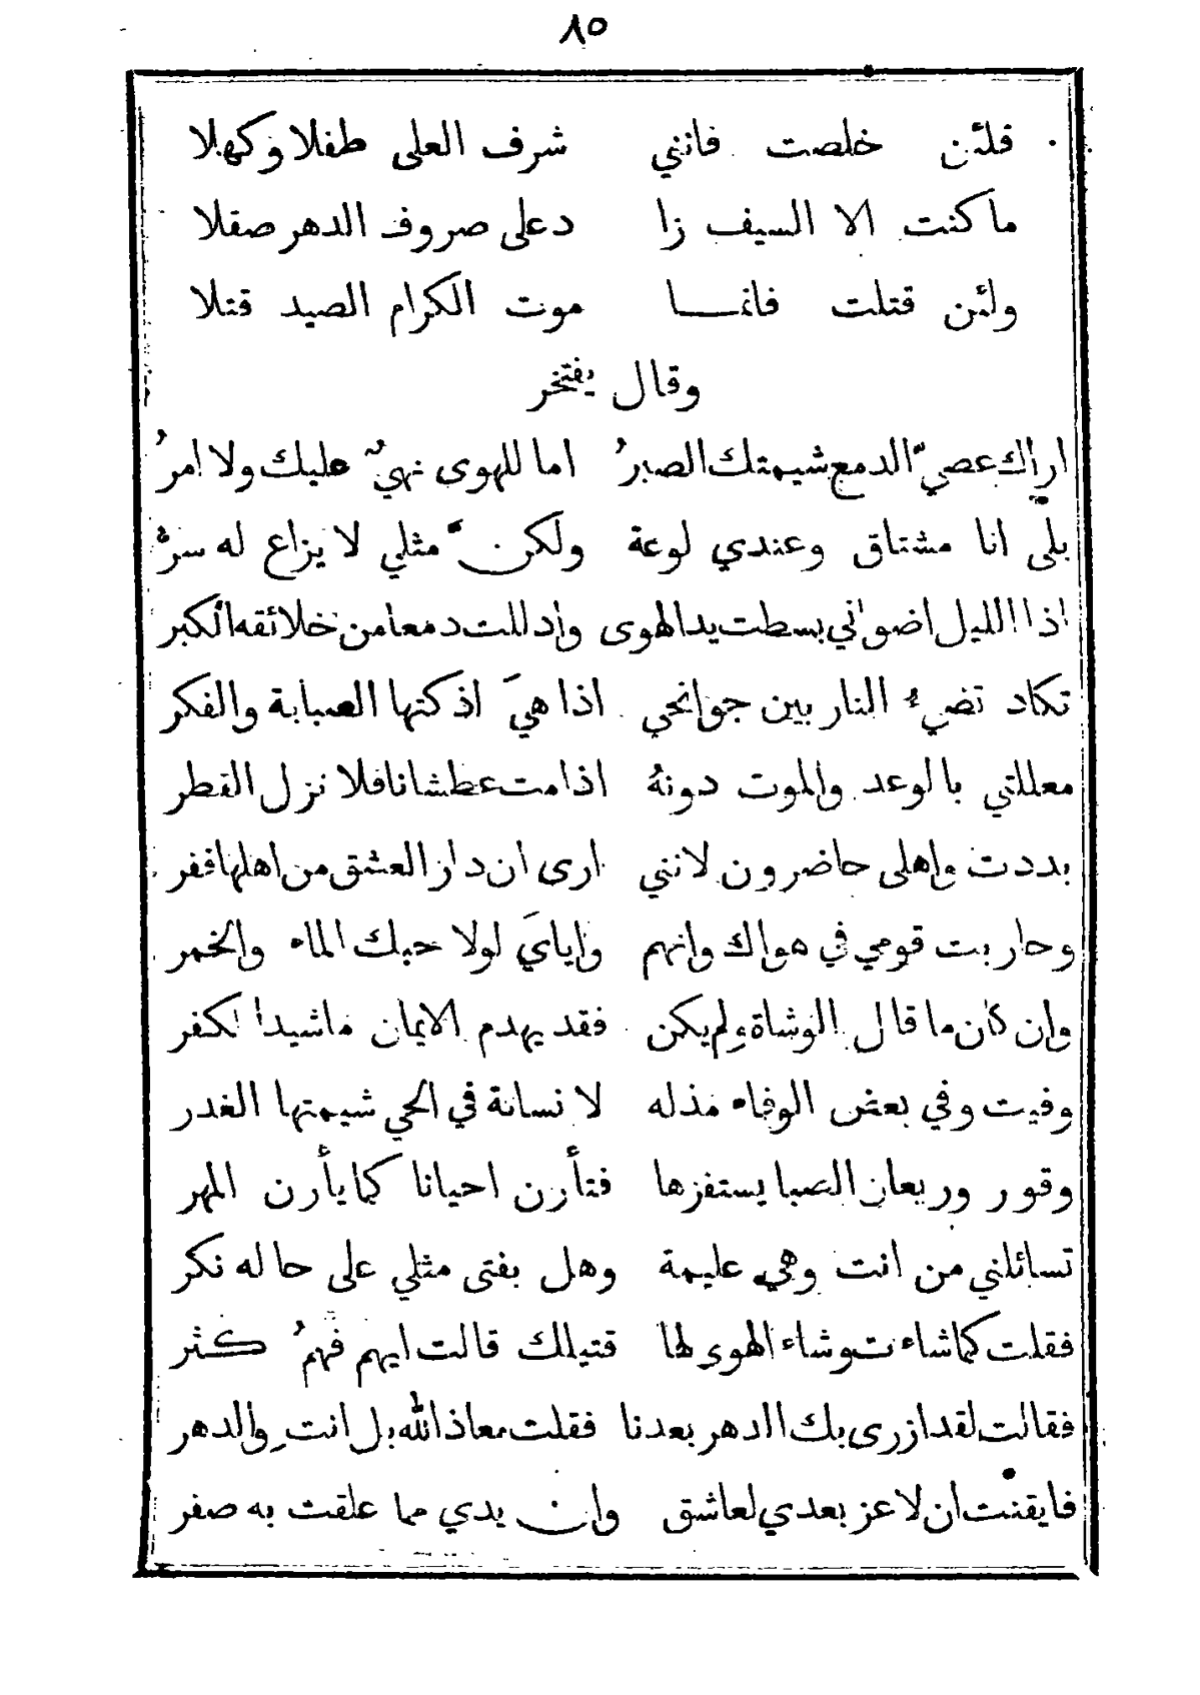 ٨٥
فلئن خلصت فانني شرف العلى طفلا وكهلا
ما كنت الا السيف زا دعلى صروف الدهر صقلا
ولئن قتلت فانمـــا موت الكرام الصيد قتلا
وقال يفتخر
اراك عصيّ الدمع شيمتك الصبرُ اما للهوى نهيٌ عليك ولا امرُ
بلى انا مشتاق وعندي لوعة ولكنّ مثلي لا يزاع له سرّ
اذا الليل اضواني بسطت يد الهوى واذللت دمعا من خلائقه الكبر
تكاد تضيءُ النار بين جوانحي اذا هيَ اذكتها الصبابة والفكر
معللتي بالوعد والموت دونهُ اذا مت عطشانا فلا نزل القطر
بددت واهلى حاضرون لانني ارى ان دار العشق من اهلها قفر
وحاربت قومي في هواك وانهم واياىَ لولا حبك الماء والخمر
وان كان ما قال الوشاة ولم يكن فقد يهدم الايمان ماشيد الكفر
وفيت وفي بعض الوفاء مذله لا نسانة في الحي شيمتها الغدر
وقور وريعان الصبا يستفزها فتأرن احيانا كما يأرن المهر
تسائلني من انت وهي عليمة وهل بفتى مثلي على حاله نكر
فقلت كما شاءت وشاء الهوى لها قتيلك قالت ايهم فهمُ كثر
فقالت لقد ازرى بك الدهر بعدنا فقلت معاذ الله بل انت والدهر
فايقنت ان لا عز بعدي لعاشق وان يدي مما علقت به صفر